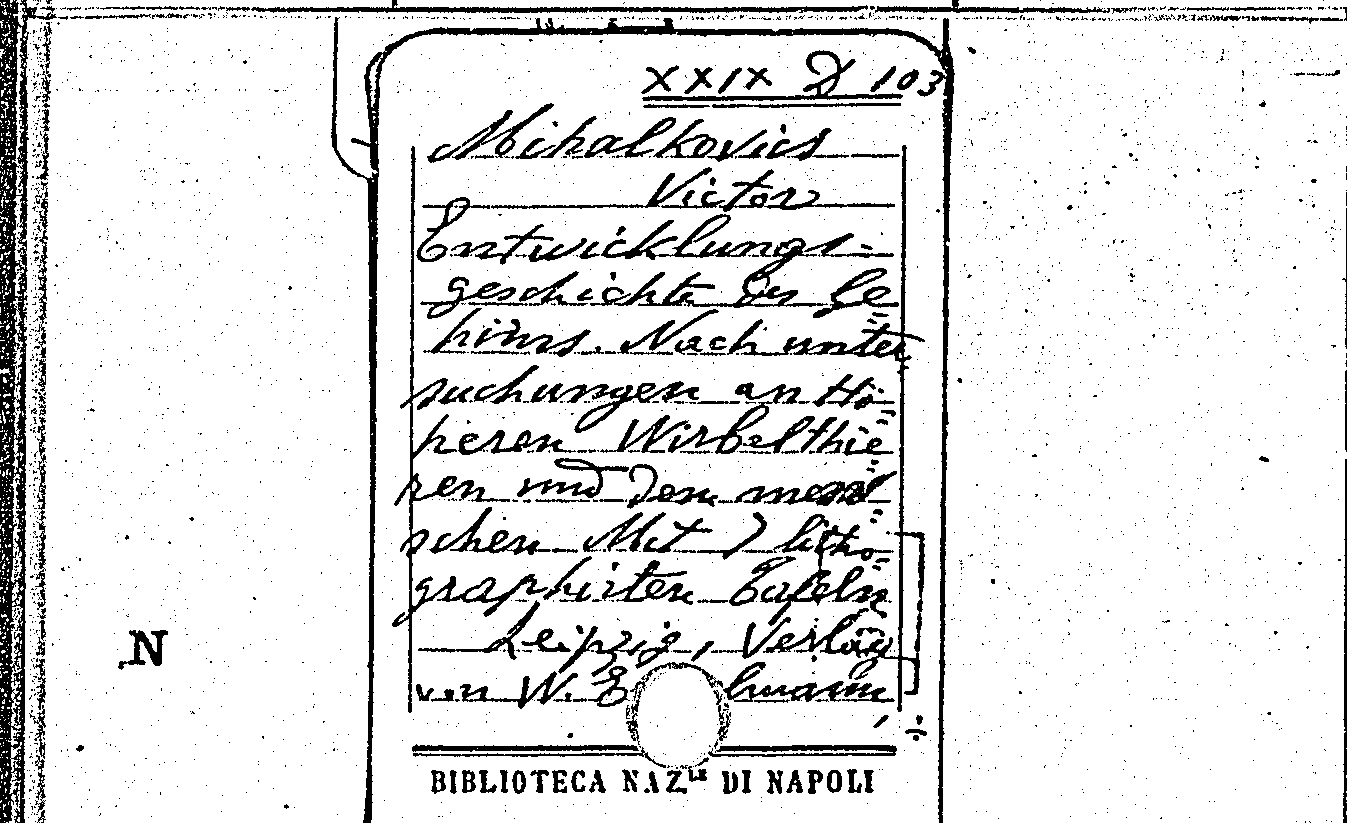 XXIX D 103
Mihalkovics
Victor
Entwicklungs-
geschichte des Ge
hirns. Nach unter
suchungen an Hö
heren Wirbelthie
ren und dem men
schen Mit 7 litho
graphirten Tafeln
Leipzig, Verlag
von W. E lmann,
N
BIBLIOTECA NAZ.LE DI NAPOLI